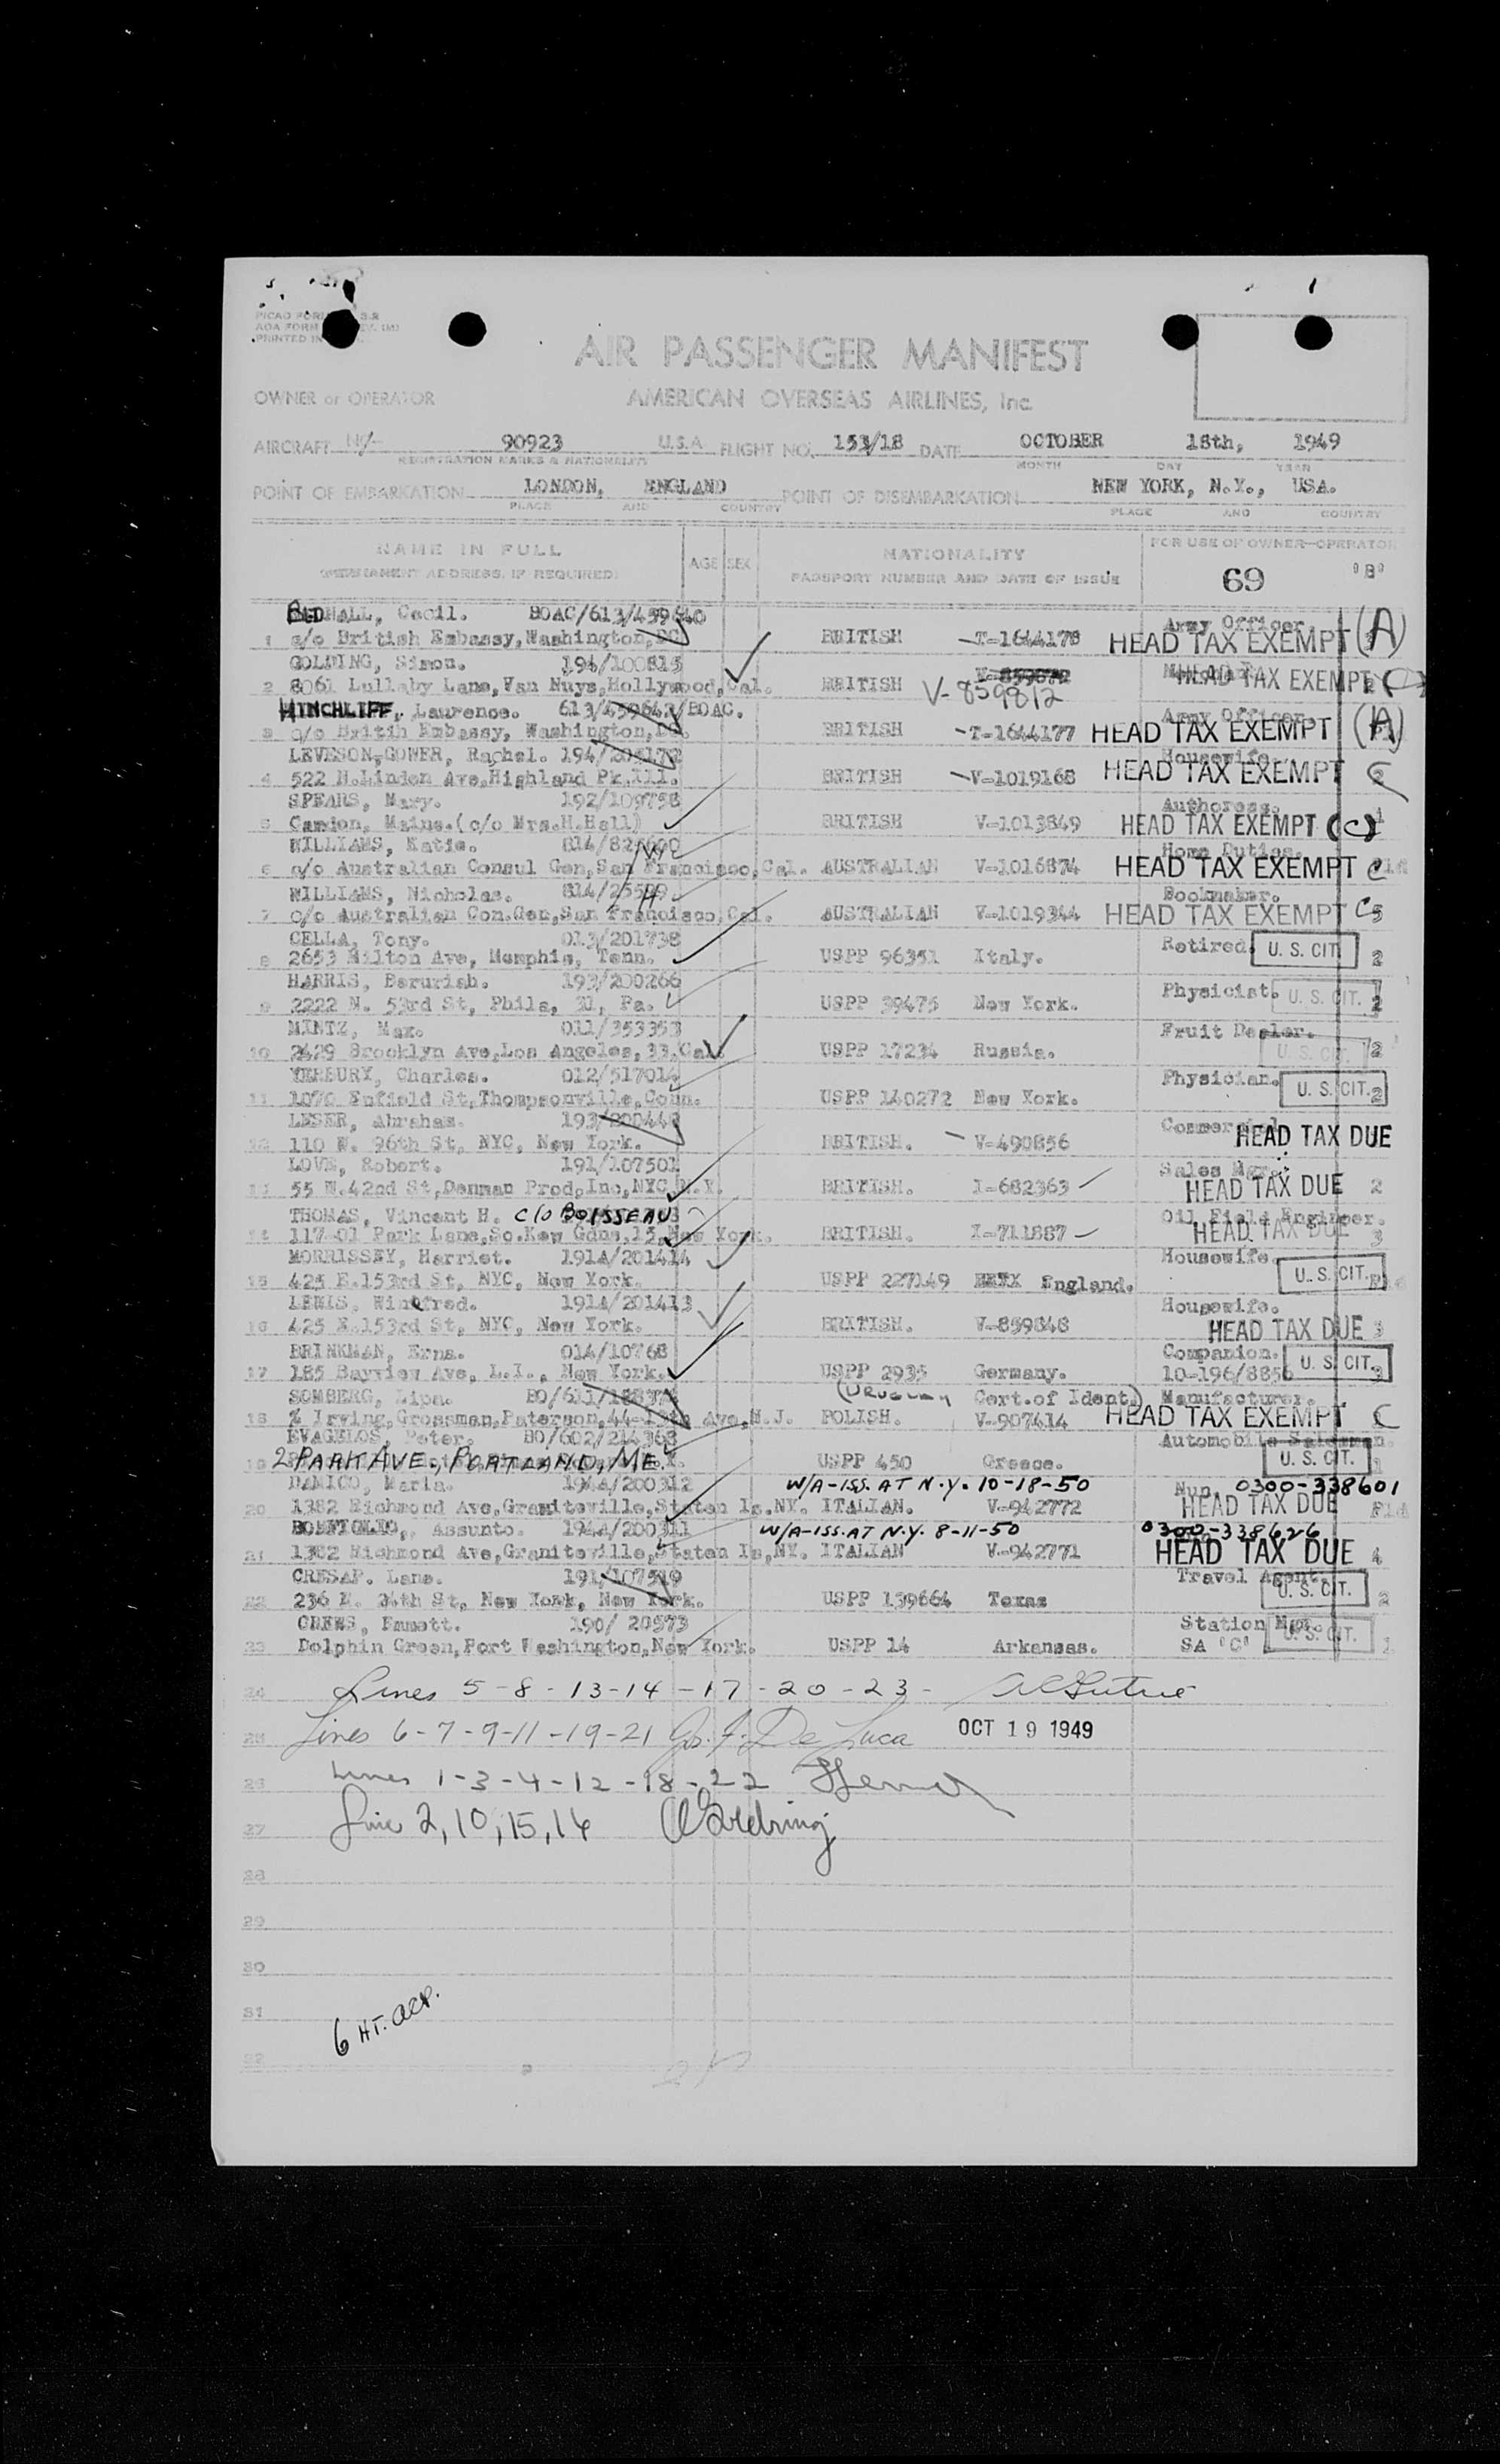 AIR PASSENGER MANIFEST
OWNER or OPERATOR AMERICAN OVERSEAS AIRLINES, Inc.
AIRCRAFT 90923 U.S.A. FLIGHT NO. 153/18 DATE OCTOBER 18th, 1949
REGISTRATION MARKS & NATIONALITY MONTH DAY YEAR
POINT OF EMBARKATION LONDON, ENGLAND POINT OF DISEMBARKATION NEW YORK, N.Y., USA.
PLACE AND COUNTRY PLACE AND COUNTRY
NAME IN FULL AGE SEX NATIONALITY FOR USE OF OWNER-OPERATOR
(PERMANENT ADDRESS, IF REQUIRED) PASSPORT NUMBER AND DATE OF ISSUE 69
HALL, Cecil. BOAC/613/459640 Army Officer.
1 c/o British Embassy, Washington, DC BRITISH T-1644178 HEAD TAX EXEMPT (A)
GOLDING, Simon. 194/100815
2 8061 Lullaby Lane, Van Nuys, Hollywood, Cal. BRITISH V-859812 HEAD TAX EXEMPT
HINCHLIFF, Laurence. 613/459642/BOAC. Army Officer.
3 c/o Britih Embassy, Washington, DC. BRITISH T-1644177 HEAD TAX EXEMPT (A)
LEVESON-GOWER, Rachel. 194/ Housewife.
4 522 N.Linden Ave, Highland Pk, Ill. BRITISH V-1019168 HEAD TAX EXEMPT C
SPEARS, Mary. 192/109758 Authoress.
5 Camden, Maine. (c/o Mrs.H.Hall) BRITISH V-1013849 HEAD TAX EXEMPT (C)
WILLIAMS, Katie. 814/ Home Duties.
6 c/o Australian Consul Gen, San Francisco, Cal. AUSTRALIAN V-1016874 HEAD TAX EXEMPT C
WILLIAMS, Nicholas. 814/ Bookmaker.
7 c/o Australian Con.Gen, San Francisco, Cal. AUSTRALIAN V-1019344 HEAD TAX EXEMPT C
CELLA, Tony. 013/201738 Retired. U. S. CIT.
8 2653 Milton Ave, Memphis, Tenn. USPP 96351 Italy. 2
HARRIS, 193/200266 Physicist. U. S. CIT.
9 2222 N. 53rd St, Phila, 31, Pa. USPP 39475 New York. 2
MINTZ, Max. 011/353353 Fruit Dealer.
10 2429 Brooklyn Ave, Los Angeles, 33, Cal. USPP 17234 Russia. U. S. CIT. 2
YERBURY, Charles. 012/517014 Physician. U. S. CIT.
11 1070 Enfield St, Thompsonville, Conn. USPP 140272 New York. 2
LESER, Abraham. 193/200448
12 110 W. 96th St, NYC, New York. BRITISH. V-490856 HEAD TAX DUE
LOVE, Robert. 191/107501 Sales Mgr.
13 55 W.42nd St, Denman Prod, Inc, NYC, N.Y. BRITISH. I-682363 HEAD TAX DUE 2
THOMAS, Vincent H. C/O BOISSEAU Oil Field Engineer.
14 117-01 Park Lane, So.Kew Gdns, 15, New York. BRITISH. I-711887 HEAD TAX DUE 3
MORRISSEY, Harriet. 191A/201414 Housewife. U. S. CIT.
15 425 E.153rd St, NYC, New York. USPP 227149 England.
LEWIS, Winifred. 191A/201413 Housewife.
16 425 E.153rd St, NYC, New York. BRITISH. V-859848 HEAD TAX DUE 3
BRINKMAN, Erna. 014/10768 Companion. U. S. CIT.
17 185 Bayview Ave, L.I., New York. USPP 2935 Germany. 10-196/8856
SOMBERG, Lipa. BO/611/ (URUGUAY Cert.of Ident.) Manufacturer.
18 % Irving, Grossman, Paterson, Ave, N.J. POLISH. V-907414 HEAD TAX EXEMPT C
EVAGELOS, Peter. BO/602/214368 Automobile Salesman.
19 2 PARK AVE., PORTLAND, ME. USPP 450 Greece. U. S. CIT. 1
DAMICO, Maria. 194A/200312 W/A-ISS. AT N.Y. 10-18-50 Nun. 0300-338601
20 1382 Richmond Ave, Graniteville, Staten Is, NY. ITALIAN. V-942772 HEAD TAX DUE
Assunto. 194A/200311 W/A-ISS. AT N.Y. 8-11-50 0300-338626
21 1382 Richmond Ave, Graniteville, Staten Is, NY. ITALIAN V-942771 HEAD TAX DUE 4
CRESAP. Lane. 191/107519 Travel Agent. U. S. CIT.
22 236 E. 24th St, New York, New York. USPP 139664 Texas 2
CREWS, Emmett. 190/ 20573 Station Mgr. U. S. CIT.
23 Dolphin Green, Port Washington, New York. USPP 14 Arkansas. SA 'C'
24 Lines 5-8-13-14-17-20-23-
25 Lines 6-7-9-11-19-21 Jos. F. De Luca OCT 19 1949
26 Lines 1-3-4-12-18-22
27 Line 2,10,15,16
28
29
30
31
6 HT. acp.
32